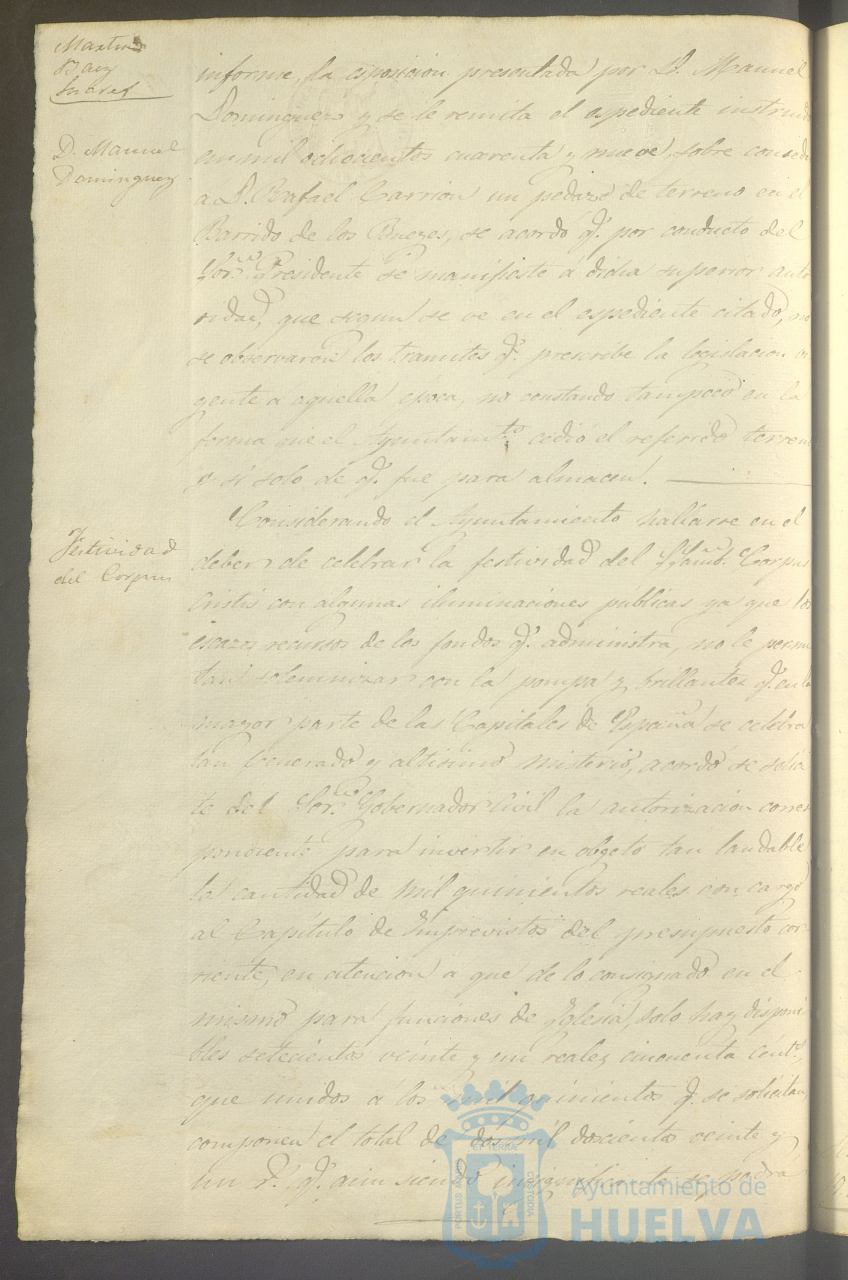 Martin
Bay
Suares
informe, la esposicion presentada por D. Manuel
Dominguez y se le remita el espediente instruido
D. Manuel
Dominguez
en mil ochocientos cuarenta y nueve, sobre
a D. Rafael Carrion un pedazo de terreno en el
Barrido de los Bueyes, se acordó q.e por conducto del
Sor. Presidente se manifieste á dicha superior auto
ridad, que segun se ve en el espediente citado, no
se observaron los tramites q.e prescribe la legislacion vi
gente á aquella época, no constando tampoco en la
forma que el Ayuntam.to cedió el referido terreno
y si solo de q.e fue para almacen.
Festividad
del Corpus
Considerando el Ayuntamiento hallarse en el
deber de celebrar la festividad del Corpus
Cristi con algunas iluminaciones publicas ya que los
escazos recursos de los fondos q.e administra, no le permi
tan solemnizar con la pompa y brillantez q.e en la
mayor parte de las Capitales de España se celebra
tan venerado y altisimo misterio, acordó se solici
te del Sor. Gobernador Civil la autorizacion corres
pondiente para invertir en objeto tan laudable
la cantidad de mil quinientos reales con cargo
al Capítulo de Imprevistos del presupuesto cor
riente, en atencion á que de lo consignado en el
mismo para funciones de Iglesia, solo hay disponi
bles setecientos veinte y un reales cincuenta cent.s
que unidos á los mil quinientos q.e se solicitan,
componen el total de dos mil doscientos veinte y
un r.s q.e aun siendo insignificante se podra
PORTUS MARIS
ET TERRAE
CUSTODIA
Ayuntamiento de
HUELVA